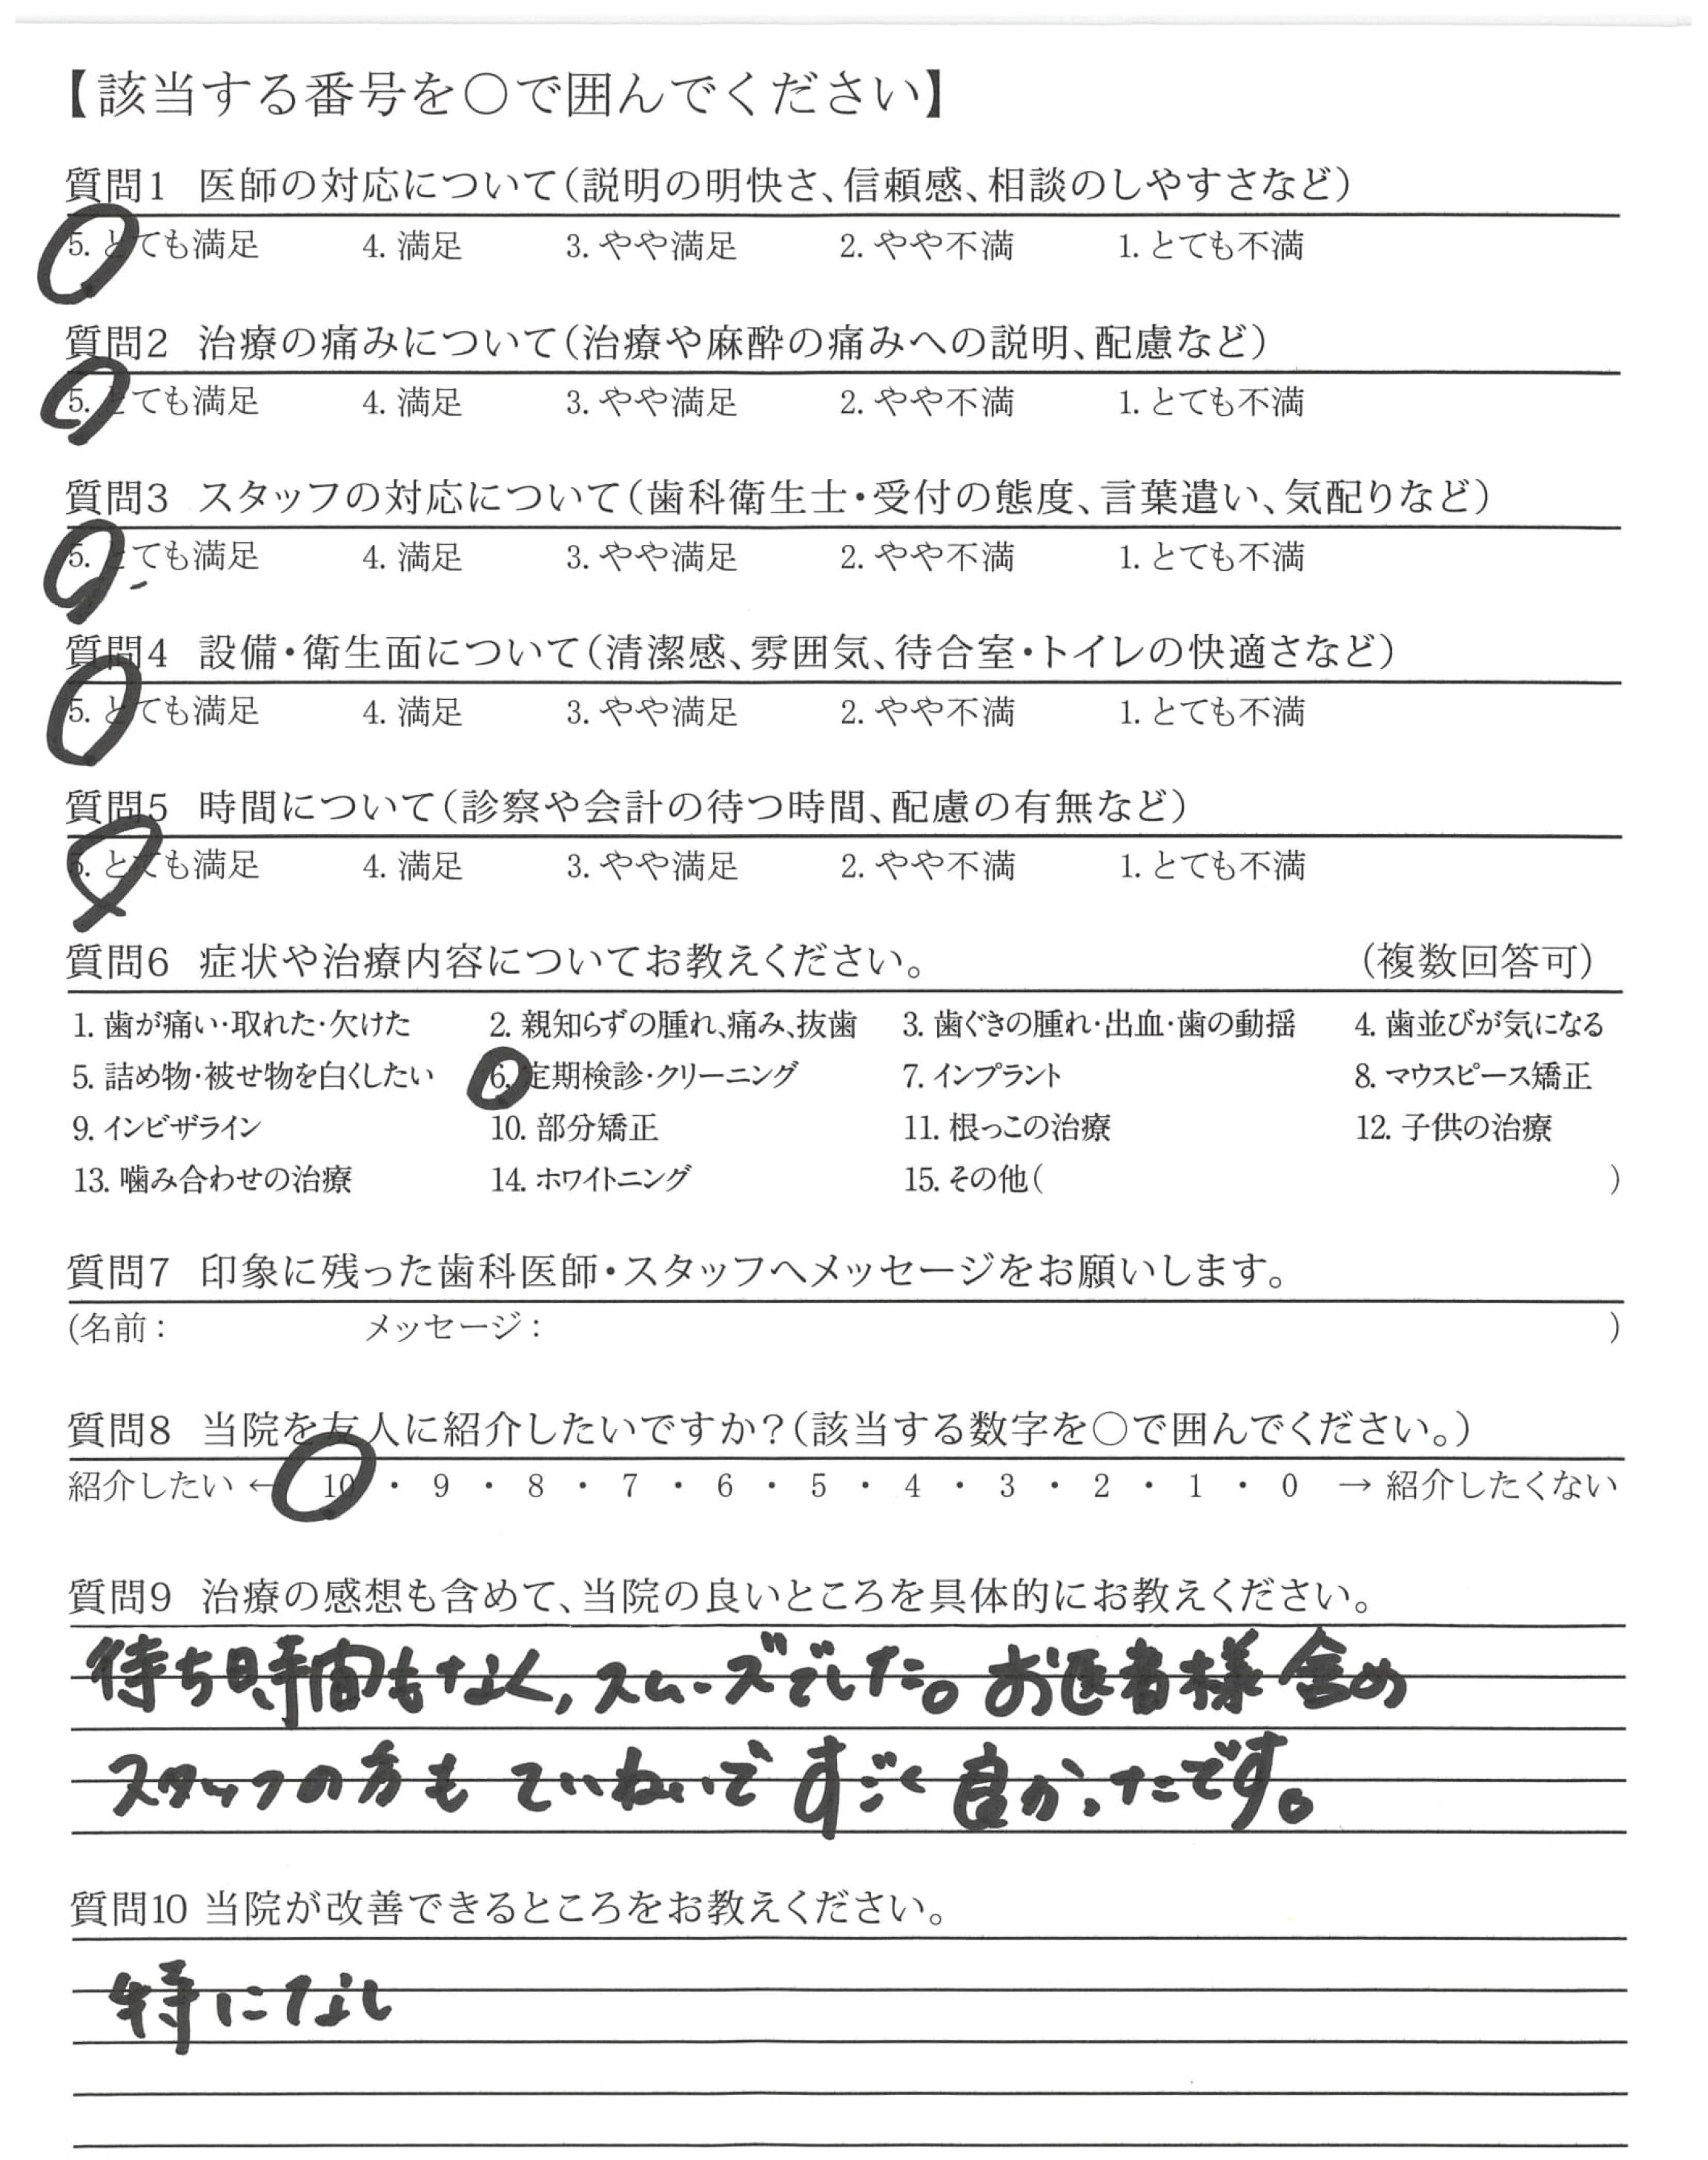 【該当する番号を○で囲んでください】
質問1 医師の対応について(説明の明快さ、信頼感、相談のしやすさなど)
5. とても満足 4. 満足 3. やや満足 2. やや不満 1. とても不満
質問2 治療の痛みについて(治療や麻酔の痛みへの説明、配慮など)
5. とても満足 4. 満足 3. やや満足 2. やや不満 1. とても不満
質問3 スタッフの対応について(歯科衛生士・受付の態度、言葉遣い、気配りなど)
5. とても満足 4. 満足 3. やや満足 2. やや不満 1. とても不満
質問4 設備・衛生面について(清潔感、雰囲気、待合室・トイレの快適さなど)
5. とても満足 4. 満足 3. やや満足 2. やや不満 1. とても不満
質問5 時間について(診察や会計の待つ時間、配慮の有無など)
5. とても満足 4. 満足 3. やや満足 2. やや不満 1. とても不満
質問6 症状や治療内容についてお教えください。 (複数回答可)
1. 歯が痛い・取れた・欠けた 2. 親知らずの腫れ、痛み、抜歯 3. 歯ぐきの腫れ・出血・歯の動揺 4. 歯並びが気になる
5. 詰め物・被せ物を白くしたい 6. 定期検診・クリーニング 7. インプラント 8. マウスピース矯正
9. インビザライン 10. 部分矯正 11. 根っこの治療 12. 子供の治療
13. 噛み合わせの治療 14. ホワイトニング 15. その他( )
質問7 印象に残った歯科医師・スタッフへメッセージをお願いします。
(名前: メッセージ: )
質問8 当院を友人に紹介したいですか?(該当する数字を○で囲んでください。)
紹介したい ← 10 ・ 9 ・ 8 ・ 7 ・ 6 ・ 5 ・ 4 ・ 3 ・ 2 ・ 1 ・ 0 → 紹介したくない
質問9 治療の感想も含めて、当院の良いところを具体的にお教えください。
待ち時間もなく,スムーズでした。お医者様含め
スタッフの方もていねいですごく良かったです。
質問10 当院が改善できるところをお教えください。
特になし